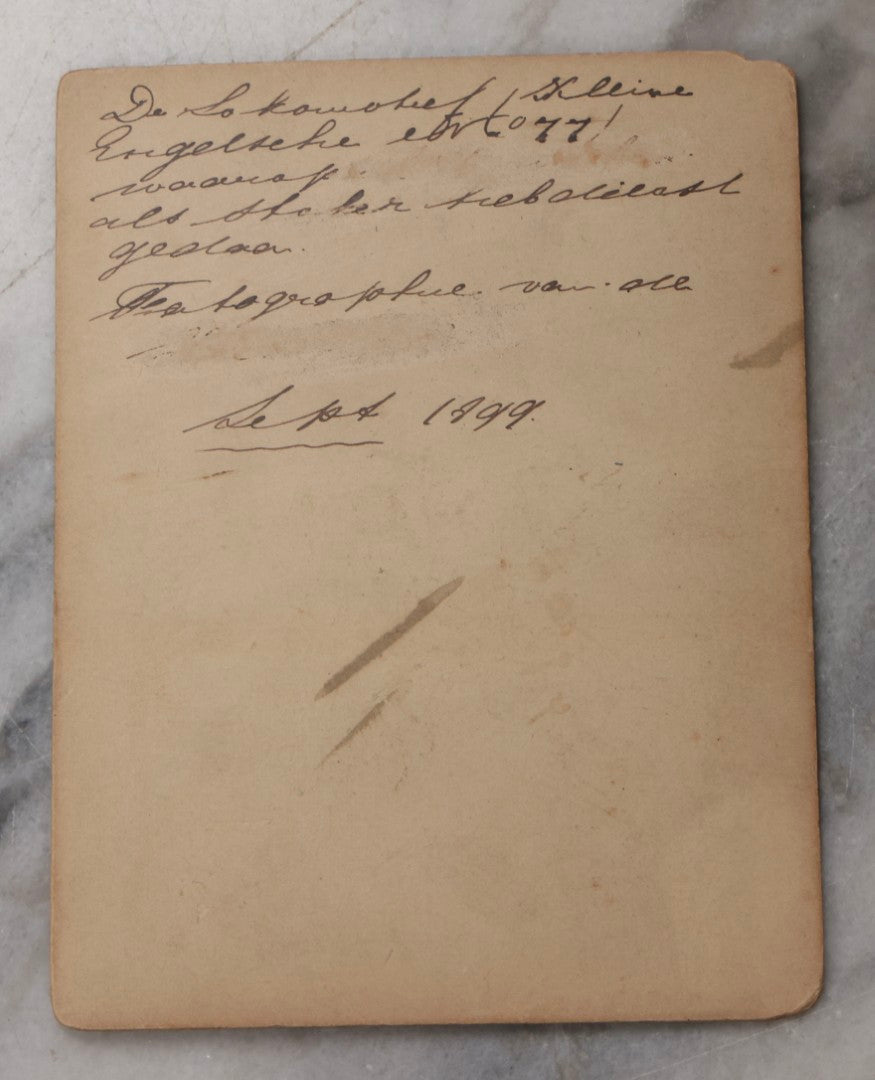 De Lokomotief (Kleine
Engelsche No 77)
waarop
als stoker heb dienst
gedaan.
Fotographie van de
Sept 1899.